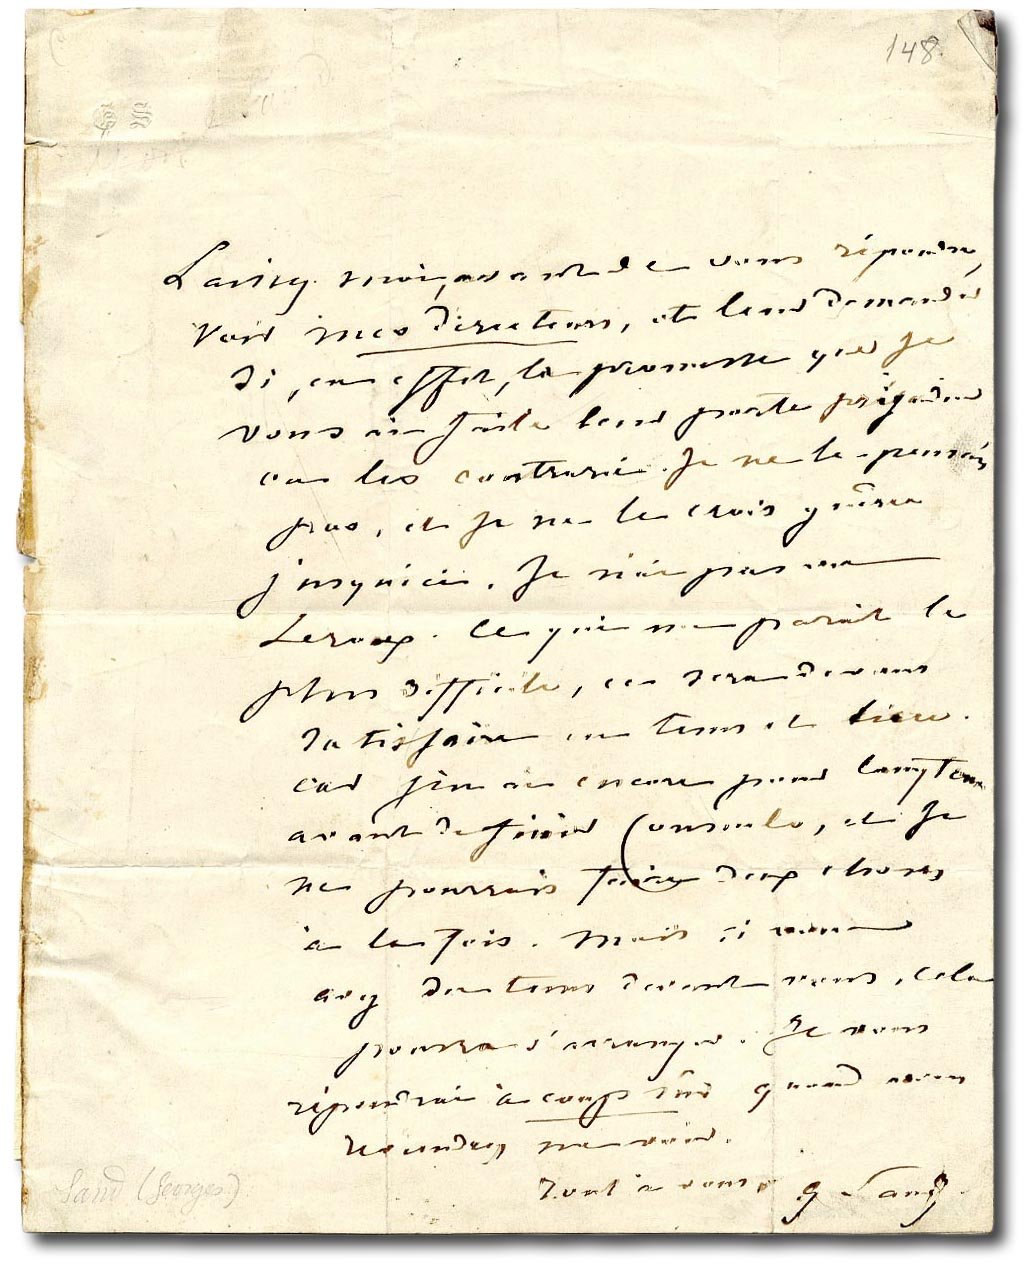 148.
Laissez moi, avant de vous répondre,
voir mes directeurs, et leur demander
si, en effet, la promesse que je
vous ai faite leur porte préjudice
ou les contrarie. Je ne le pensais
pas, et je ne le crois guère
jusqu'ici. Je n'ai pas vu
Leroux. Ce qui me parait le
plus difficile, ce sera de vous
satisfaire en tems et lieu.
car j'en ai encore pour longtems
avant de finir Consuelo, et je
ne pourrais faire deux choses
à la fois. Mais si vous
avez du tems devant vous, cela
pourra s'arranger. Je vous
répondrai à coup sûr quand vous
viendrez me voir.
Tout à vous G Sand.
Sand (Georges)